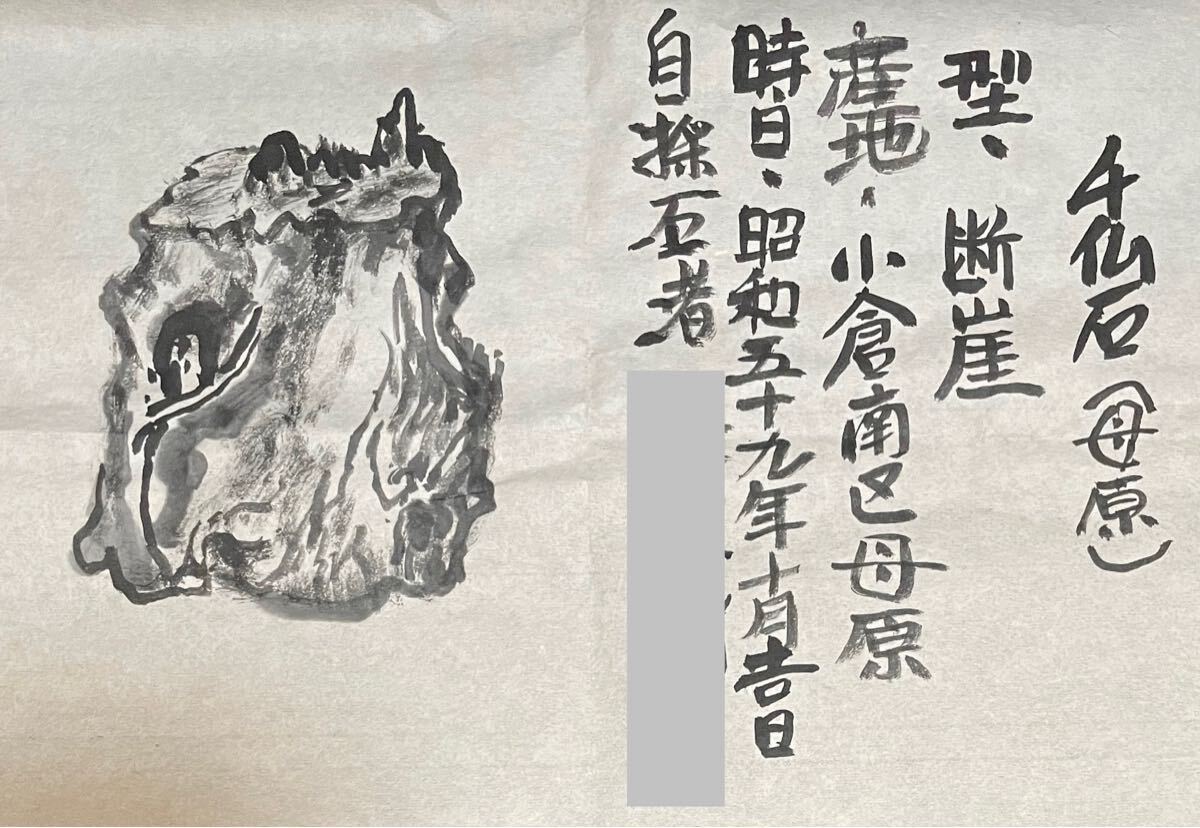 千仏石(母原)
型、断崖
産地・小倉南区母原
時日・昭和五十九年十月吉日
自採石者